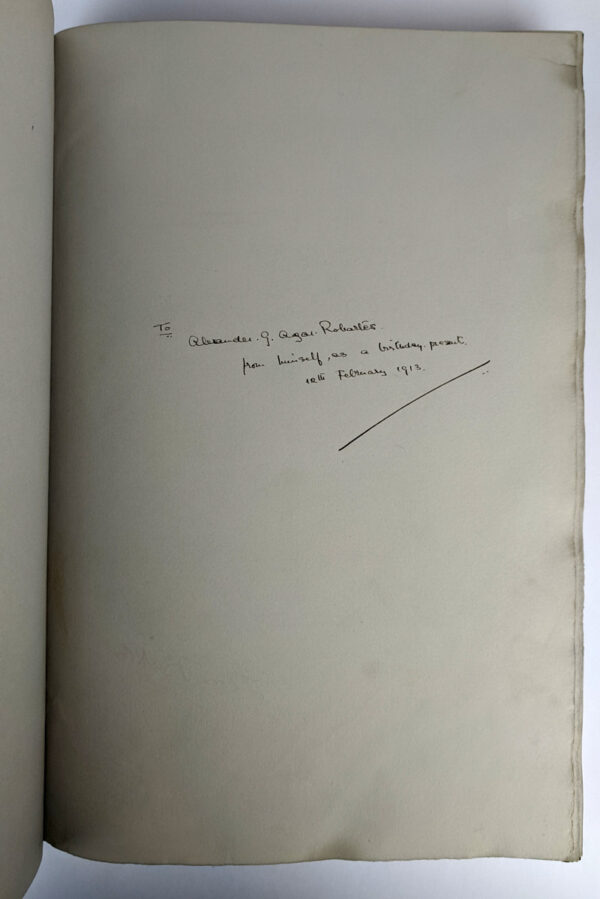 To
Alexander. G. Agar. Robartes.
from himself, as a birthday. present.
12th February 1913.